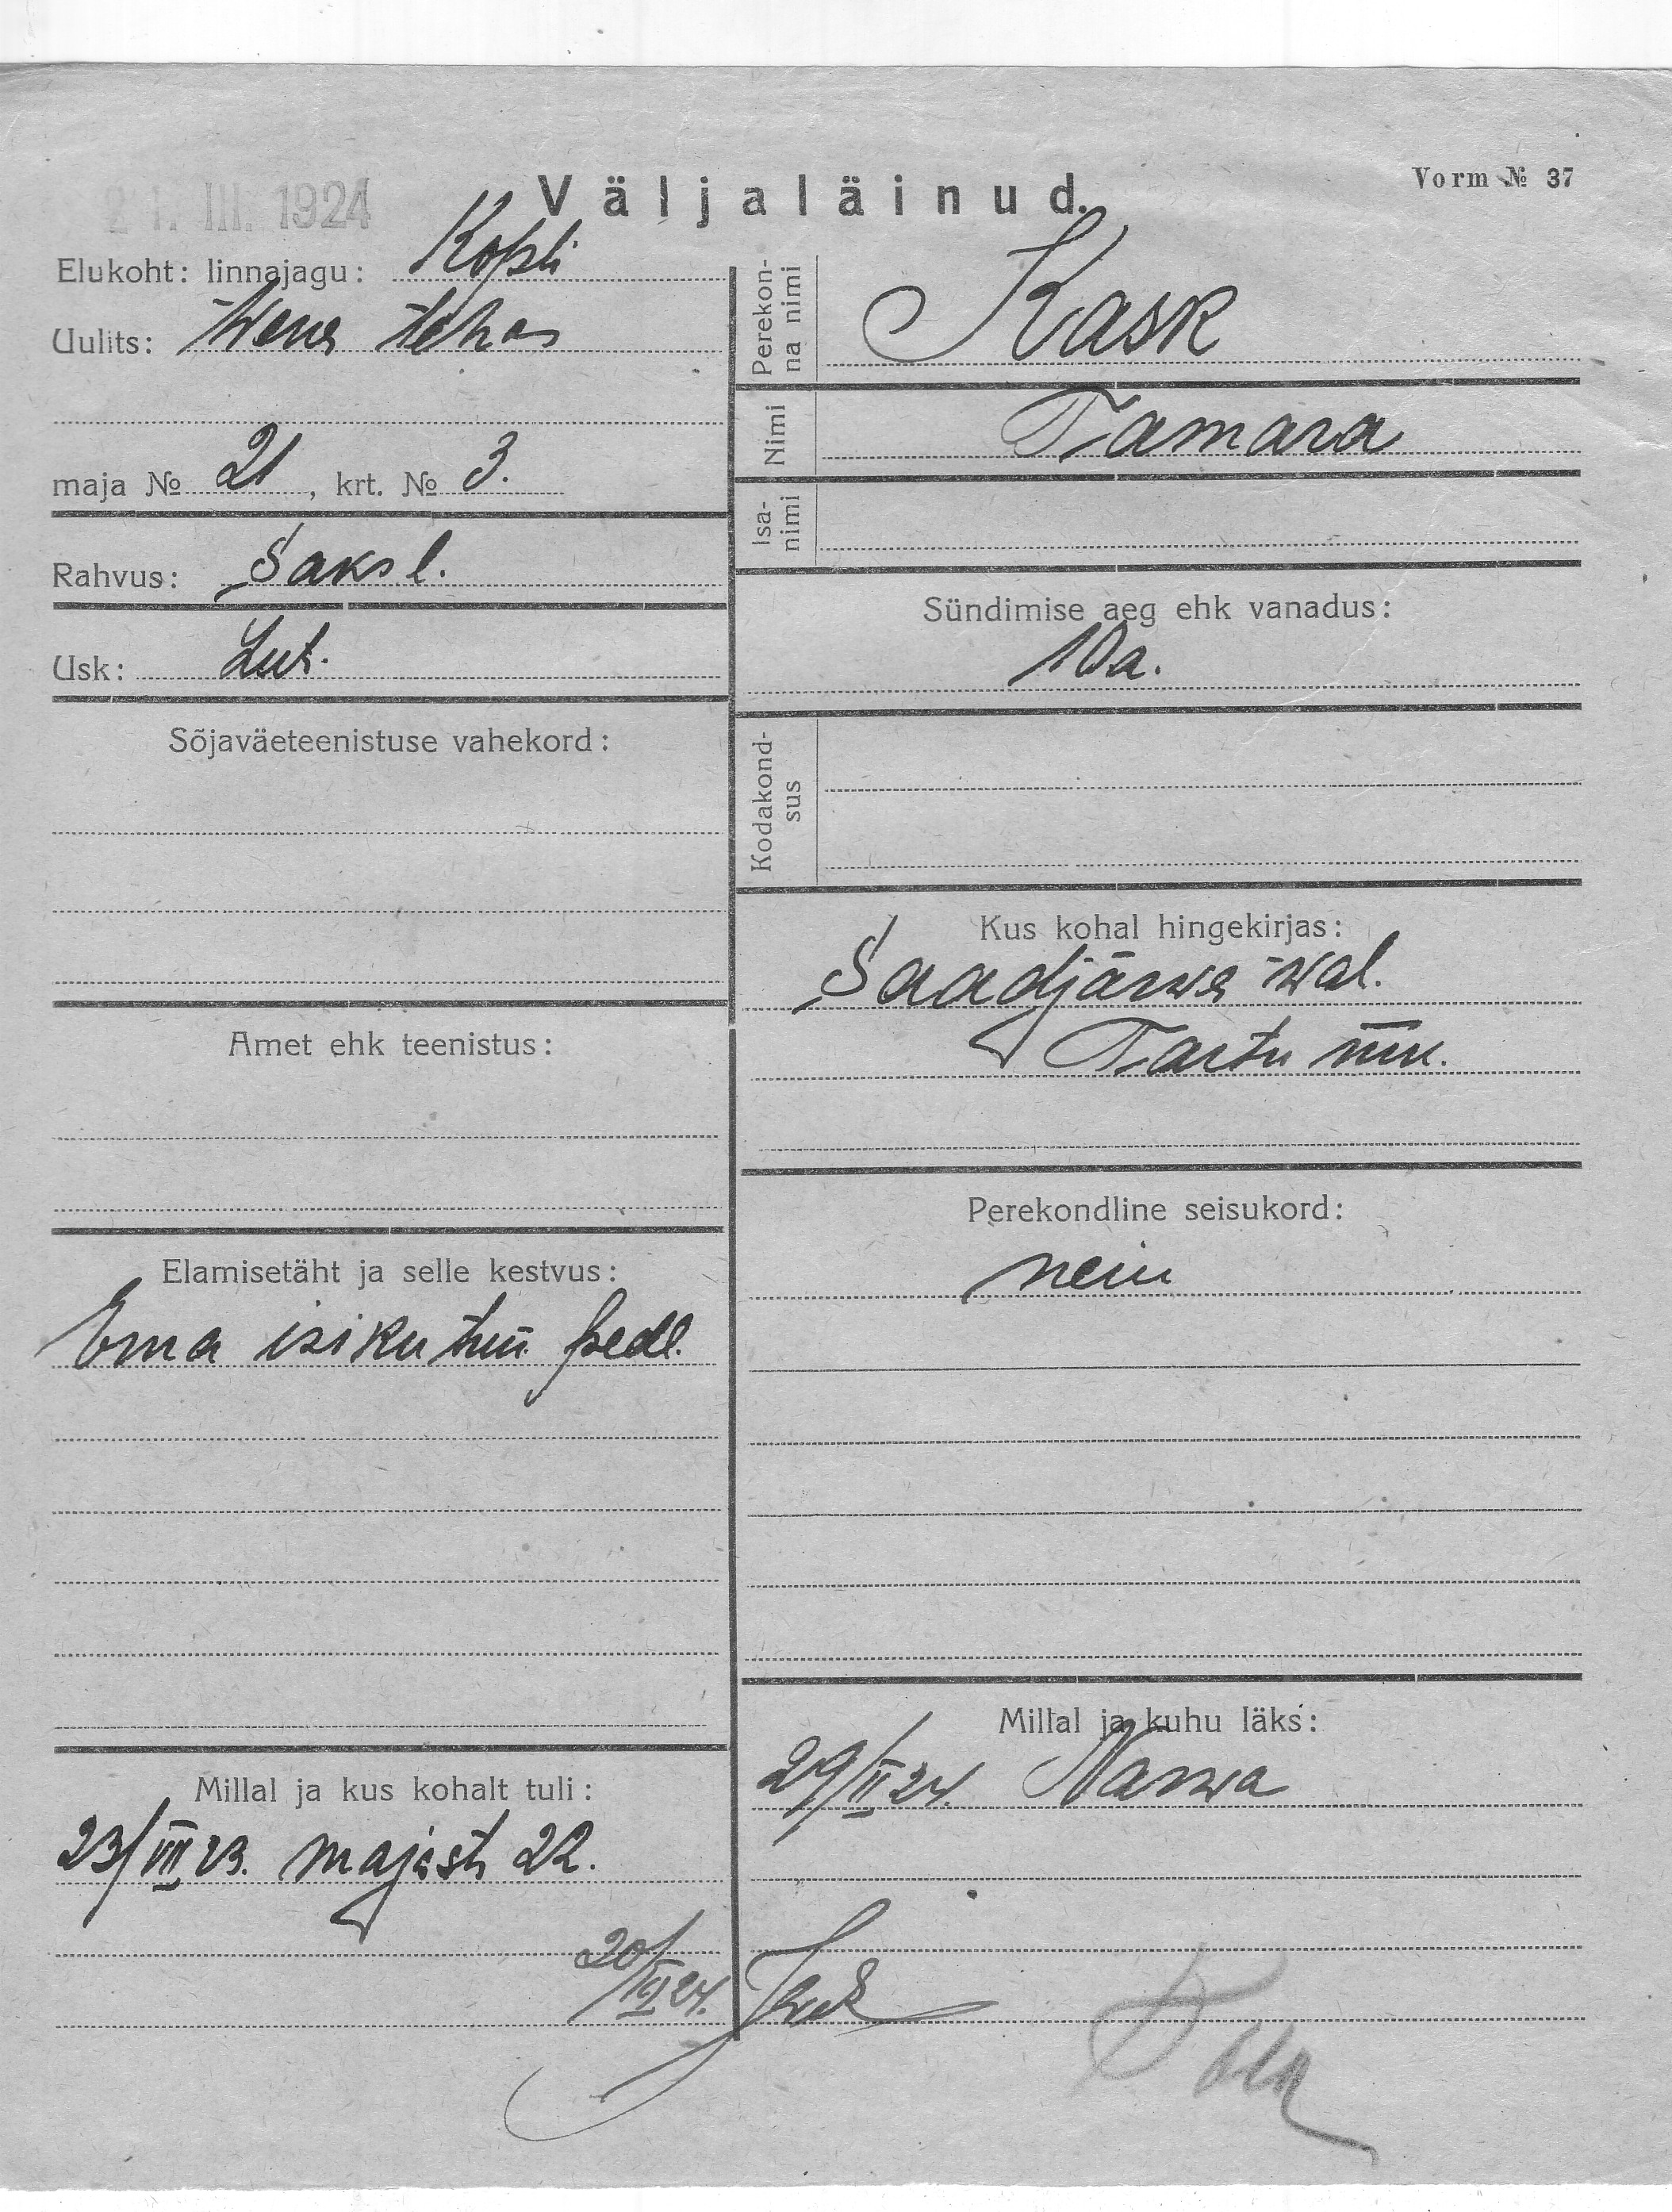 21. III. 1924
Väljaläinud.
Vorm № 37
Elukoht: linnajagu: Kopli
Uulits: Wene tehas
maja № 21, krt. № 3.
Rahvus: Saksl.
Usk: Lut.
Sõjaväeteenistuse vahekord:
Amet ehk teenistus:
Elamisetäht ja selle kestvus:
Ema isikutun
Millal ja kus kohalt tuli:
23/VIII 23. majast 22.
Perekonna nimi Kask
Nimi Tamara
Isanimi
Sündimise aeg ehk vanadus:
10 a.
Kodakondsus
Kus kohal hingekirjas:
Saadjärwe wal.
Tartu mk.
Perekondline seisukord:
neiu
Millal ja kuhu läks:
29/II 24. Narwa